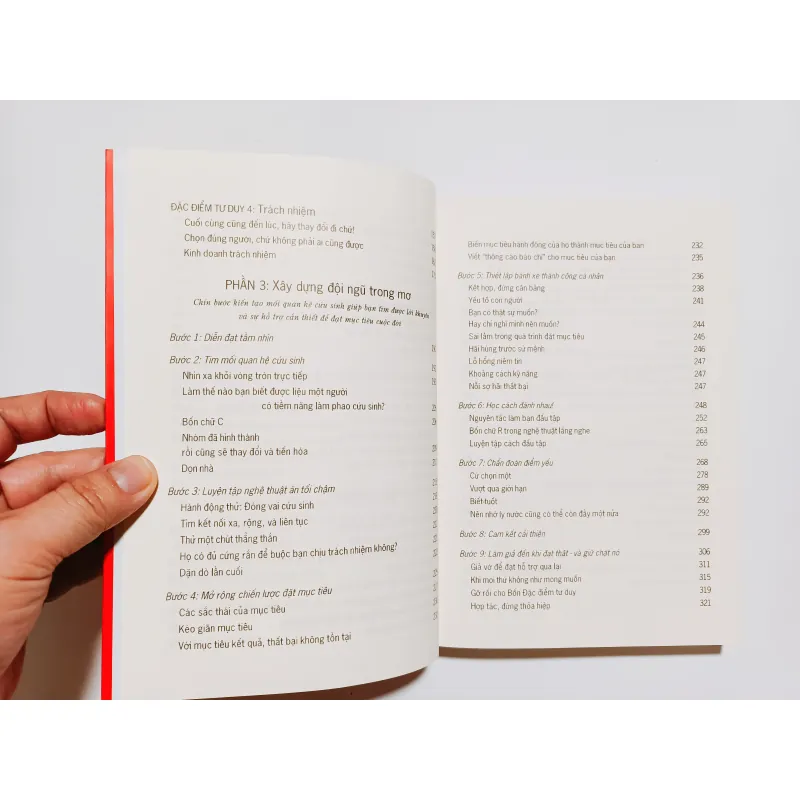 ĐẶC ĐIỂM TƯ DUY 4: Trách nhiệm
Cuối cùng cũng đến lúc, hãy thay đổi đi chứ!
Chọn đúng người, chứ không phải ai cũng được
Kinh doanh trách nhiệm
PHẦN 3: Xây dựng đội ngũ trong mơ
Chín bước kiến tạo mối quan hệ cứu sinh giúp bạn tìm được lời khuyên
và sự hỗ trợ cần thiết để đạt mục tiêu cuộc đời
Bước 1: Diễn đạt tầm nhìn
Bước 2: Tìm mối quan hệ cứu sinh
Nhìn xa khỏi vòng tròn trực tiếp
Làm thế nào bạn biết được liệu một người
có tiềm năng làm phao cứu sinh?
Bốn chữ C
Nhóm đã hình thành
rồi cũng sẽ thay đổi và tiến hóa
Dọn nhà
Bước 3: Luyện tập nghệ thuật ăn tối chậm
Hành động thử: Đóng vai cứu sinh
Tìm kết nối xa, rộng, và liên tục
Thử một chút thẳng thắn
Họ có đủ cứng rắn để buộc bạn chịu trách nhiệm không?
Dặn dò lần cuối
Bước 4: Mở rộng chiến lược đặt mục tiêu
Các sắc thái của mục tiêu
Kéo giãn mục tiêu
Với mục tiêu kết quả, thất bại không tồn tại
Biến mục tiêu hành động của họ thành mục tiêu của bạn 232
Viết "thông cáo báo chí" cho mục tiêu của bạn 235
Bước 5: Thiết lập bánh xe thành công cá nhân 236
Kết hợp, đừng cân bằng 238
Yếu tố con người 241
Bạn có thật sự muốn?
Hay chỉ nghĩ mình nên muốn? 244
Sai lầm trong quá trình đặt mục tiêu 245
Hãi hùng trước sứ mệnh 246
Lỗ hổng niềm tin 247
Khoảng cách kỹ năng 247
Nỗi sợ hãi thất bại 247
Bước 6: Học cách đánh nhau! 248
Nguyên tắc làm bạn đấu tập 252
Bốn chữ R trong nghệ thuật lắng nghe 263
Luyện tập cách đấu tập 265
Bước 7: Chẩn đoán điểm yếu 268
Cứ chọn một 278
Vượt qua giới hạn 289
Biết-tuốt 292
Nên nhớ ly nước cũng có thể còn đầy một nửa 292
Bước 8: Cam kết cải thiện 299
Bước 9: Làm giả đến khi đạt thật - và giữ chặt nó 306
Giả vờ để đạt hỗ trợ qua lại 311
Khi mọi thứ không như mong muốn 315
Gỡ rối cho Bốn Đặc điểm tư duy 319
Hợp tác, đừng thỏa hiệp 321